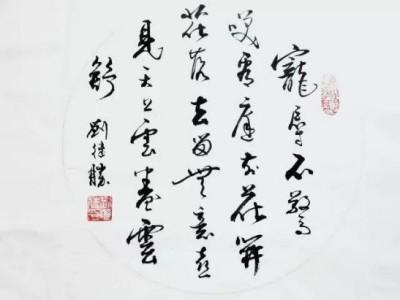 寵辱不驚
咲看庭前花開
花落去留無意喜
見天上雲卷雲
舒 劉德勝